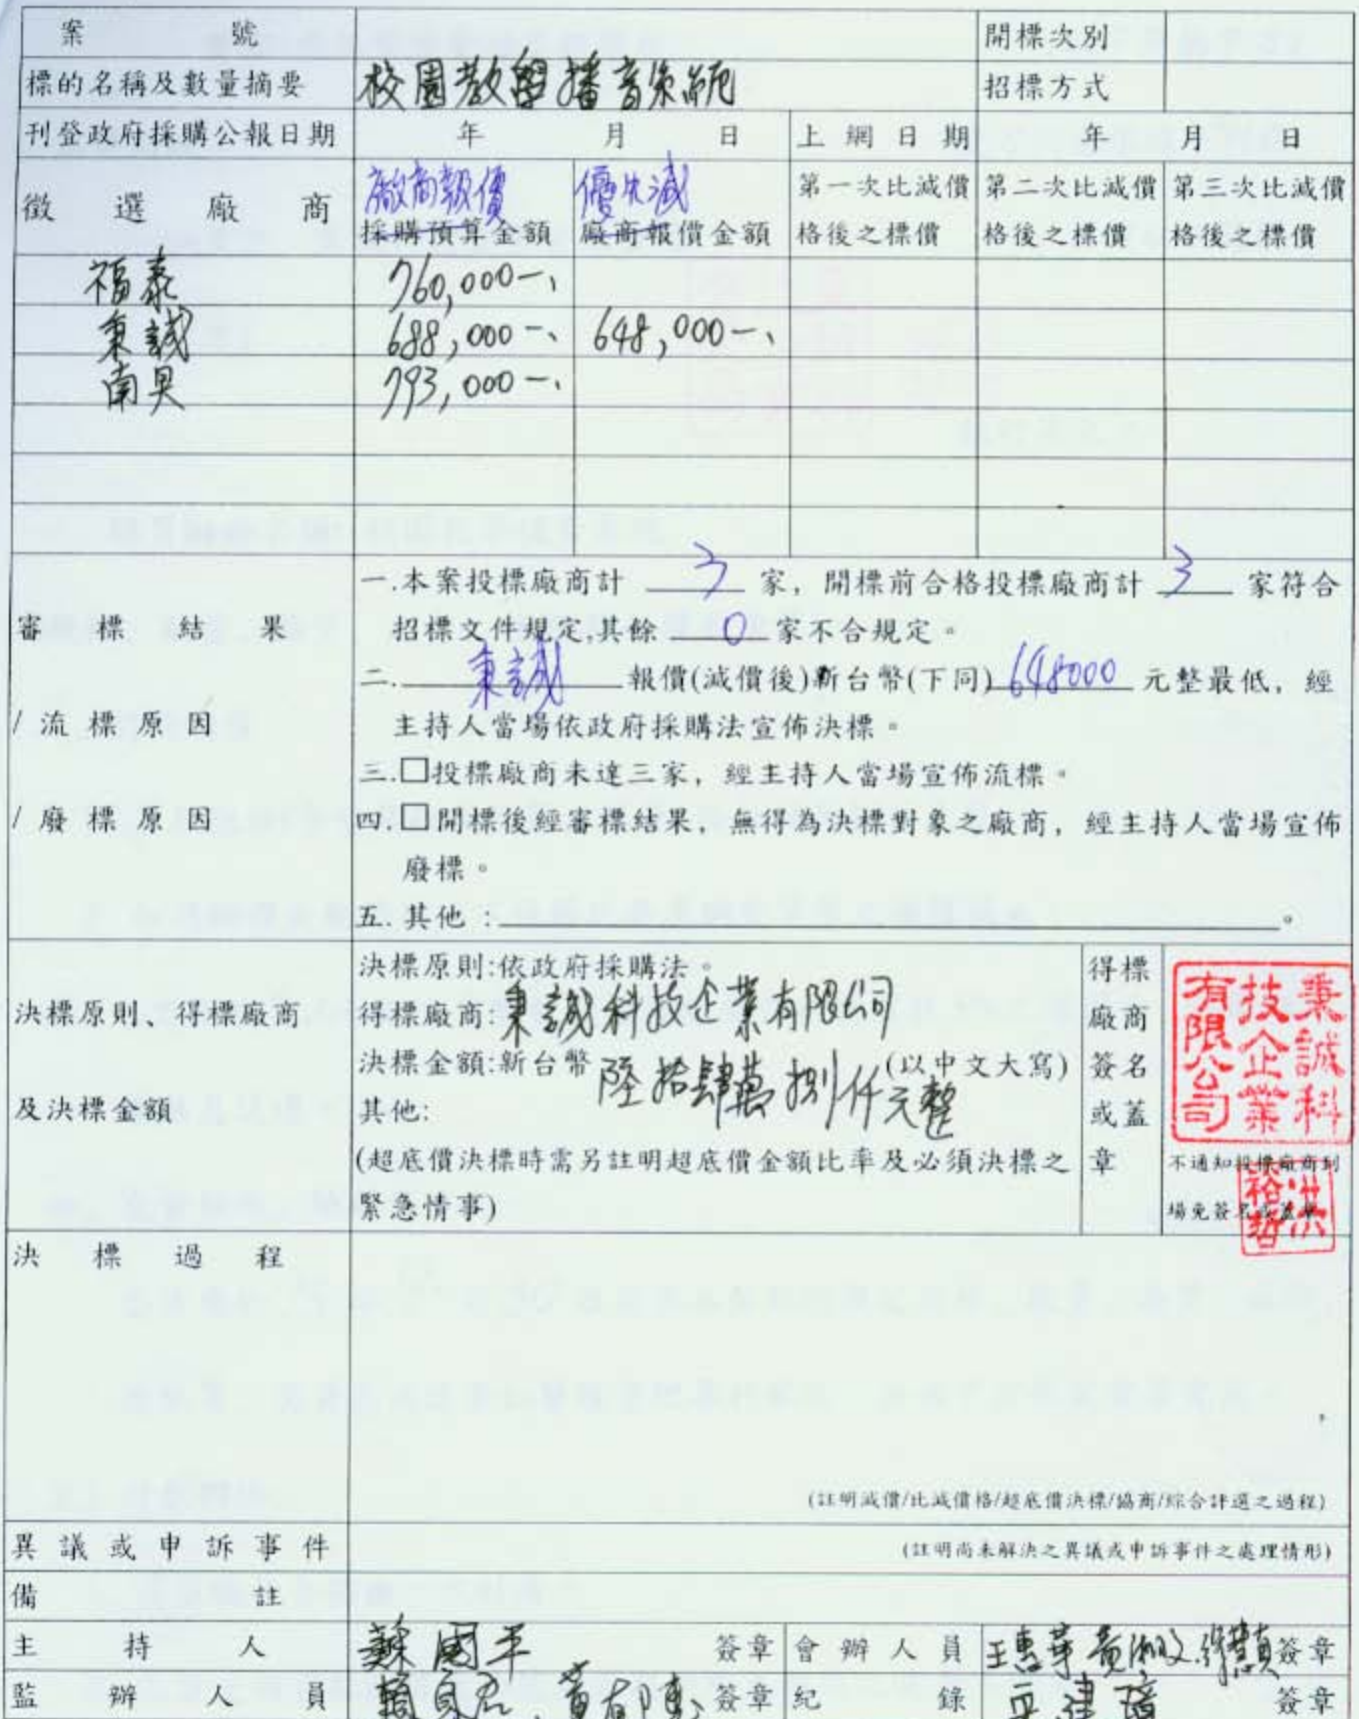 案 號 開標次別
標的名稱及數量摘要 校園教學播音系統 招標方式
刊登政府採購公報日期 年 月 日 上網日期 年 月 日
徵選廠商
廠商報價 優先減
採購預算金額 廠商報價金額
第一次比減價格後之標價 第二次比減價格後之標價 第三次比減價格後之標價
福泰 760,000-、
秉誠 688,000-、 648,000-、
南昊 793,000-、
審標結果
/流標原因
/廢標原因
一.本案投標廠商計 3 家，開標前合格投標廠商計 3 家符合
招標文件規定,其餘 0 家不合規定。
二. 秉誠 報價(減價後)新台幣(下同) 648000 元整最低，經
主持人當場依政府採購法宣佈決標。
三.□投標廠商未達三家，經主持人當場宣佈流標。
四.□開標後經審標結果，無得為決標對象之廠商，經主持人當場宣佈
廢標。
五.其他：。
決標原則、得標廠商
及決標金額
決標原則:依政府採購法。
得標廠商:秉誠科技企業有限公司
決標金額:新台幣 陸拾肆萬捌仟元整 (以中文大寫)
其他:
(超底價決標時需另註明超底價金額比率及必須決標之
緊急情事)
得標
廠商
簽名
或蓋
章
秉誠科技企業有限公司
不通知投標廠商到
場免簽名或蓋章
決標過程
(註明減價/比減價格/超底價決標/協商/綜合評選之過程)
異議或申訴事件 (註明尚未解決之異議或申訴事件之處理情形)
備註
主持人 蘇國平 簽章 會辦人員 簽章
監辦人員 簽章 紀錄 簽章